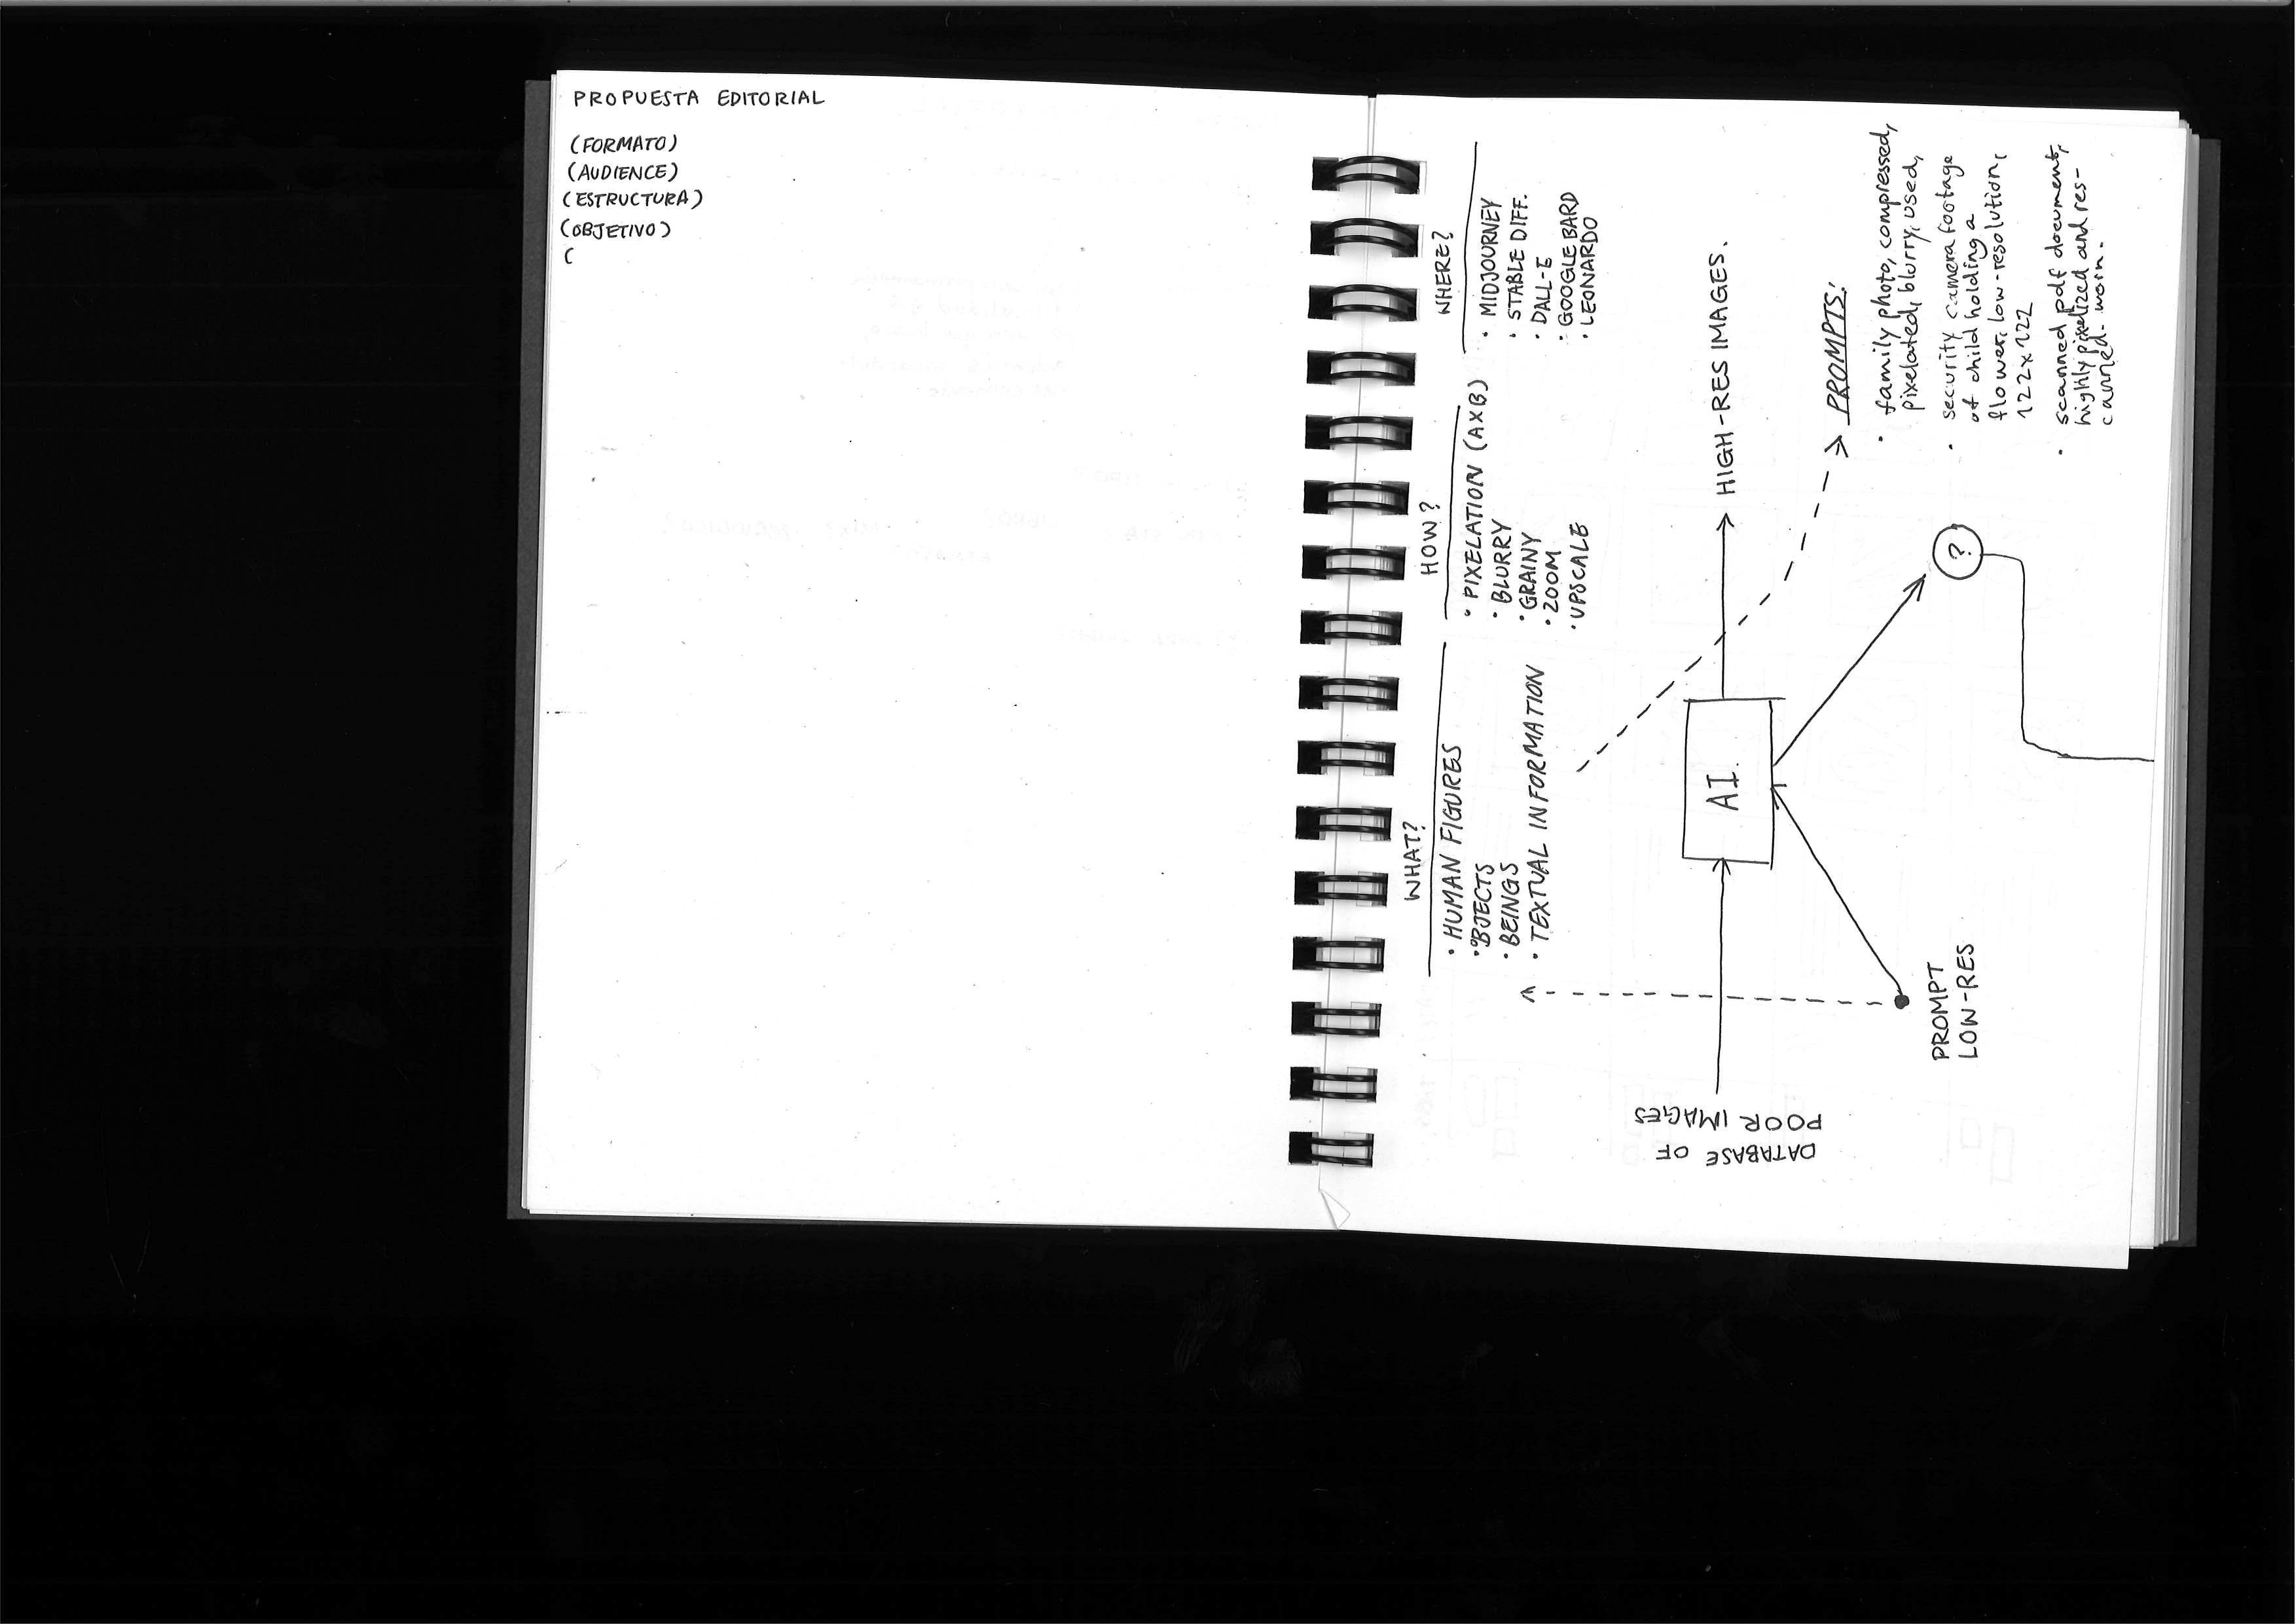 PROPUESTA EDITORIAL
(FORMATO)
(AUDIENCE)
(ESTRUCTURA)
(OBJETIVO)
(
WHAT?
• HUMAN FIGURES
• OBJECTS
• BEINGS
• TEXTUAL INFORMATION
HOW?
• PIXELATION (AXB)
• BLURRY
• GRAINY
• ZOOM
• UPSCALE
WHERE?
• MIDJOURNEY
• STABLE DIFF.
• DALL-E
• GOOGLE BARD
• LEONARDO
DATABASE OF
POOR IMAGES
AI.
HIGH-RES IMAGES.
PROMPT
LOW-RES
?
PROMPTS:
• family photo, compressed,
pixelated, blurry, used,
• security camera footage
of child holding a
flower, low-resolution,
122x122
• scanned pdf document,
highly pixelized and res-
canned. worn.